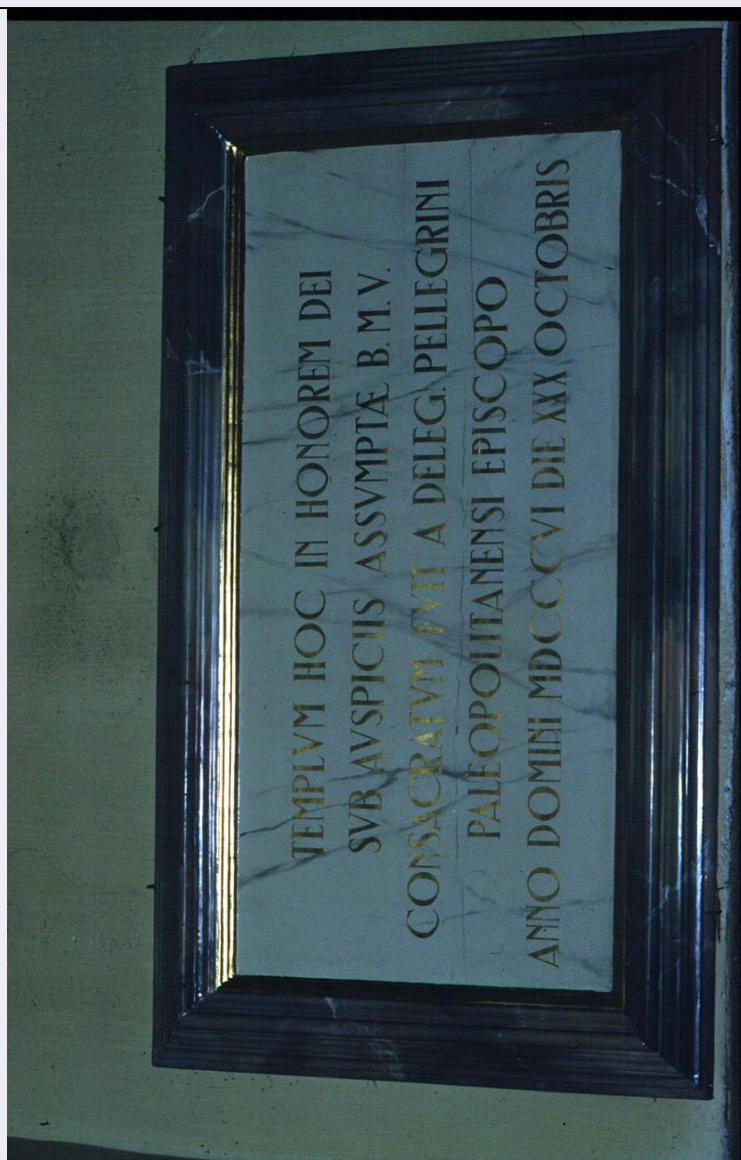 TEMPLVM HOC IN HONOREM DEI
SVB AVSPICIIS ASSVMPTÆ B. M. V.
CONSACRATVM FVIT A DELEG. PELLEGRINI
PALEOPOLITANENSI EPISCOPO
ANNO DOMINI MDCCCCVI DIE XXX OCTOBRIS